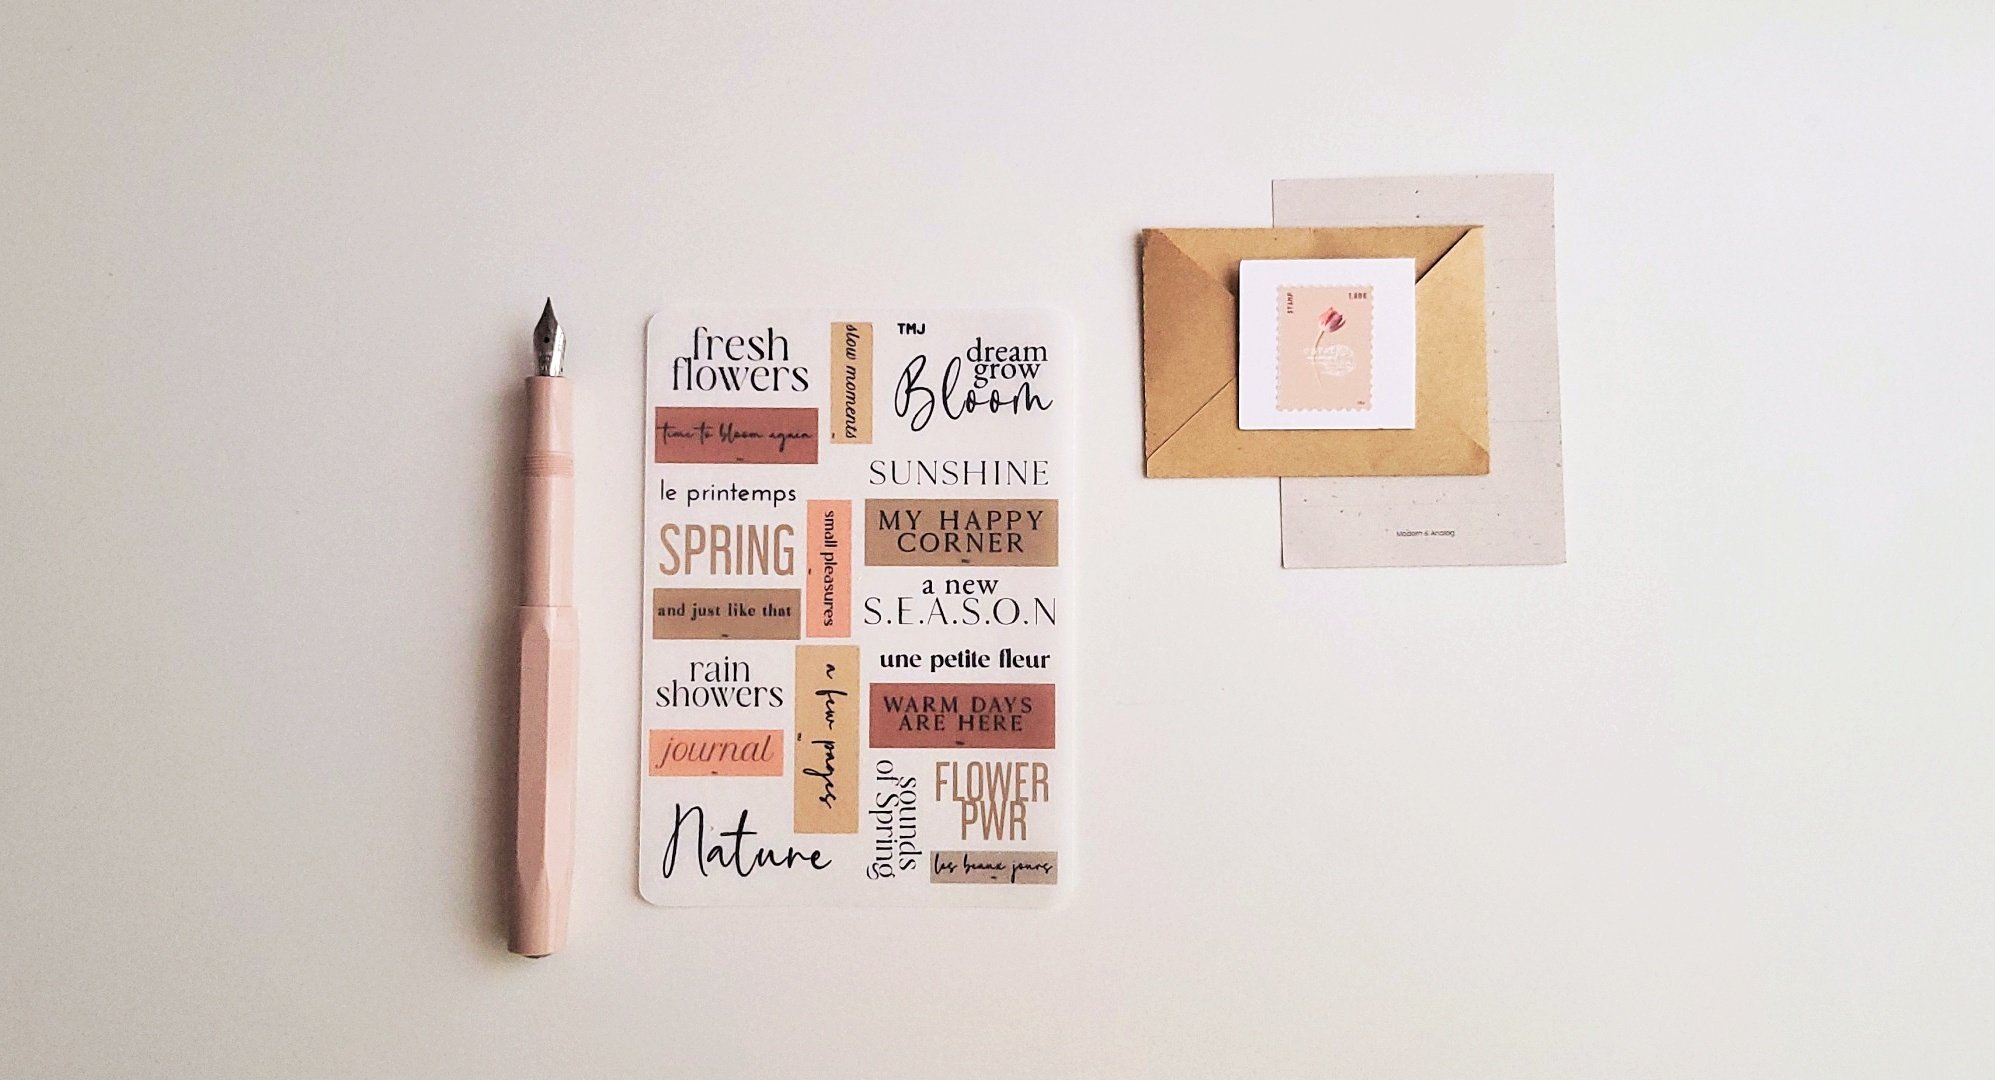 fresh
flowers
slow moments
TMJ
dream
grow
Bloom
time to bloom again
SUNSHINE
le printemps
SPRING
small pleasures
MY HAPPY
CORNER
and just like that
a new
S.E.A.S.O.N
rain
showers
a few pages
une petite fleur
WARM DAYS
ARE HERE
journal
Nature
sounds
of Spring
FLOWER
PWR
les beaux jours
STAMP
Modern & Analog